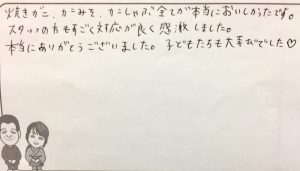 焼きガニ、カニみそ、カニしゃぶ全てが本当においしかったです。
スタッフの方もすごく対応が良く感激しました。
本当にありがとうございました。子どもたちも大喜びでした♡